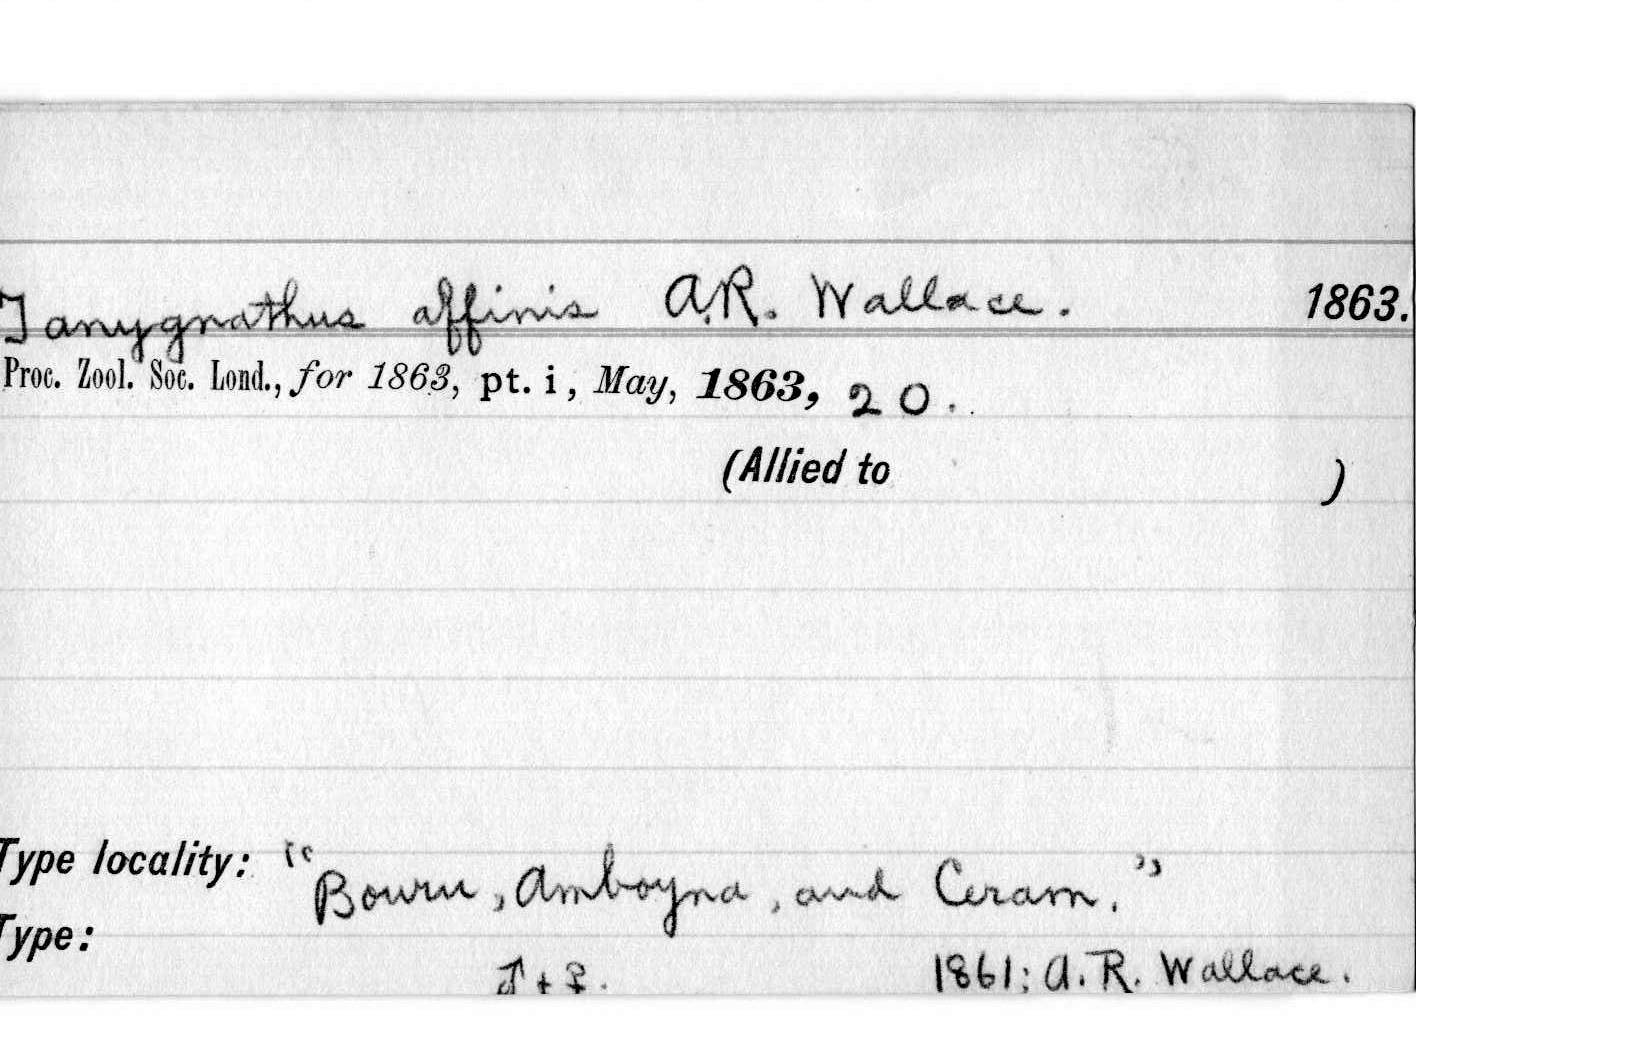 Tanygnathus affinis A.R. Wallace. 1863.
Proc. Zool. Soc. Lond., for 1863, pt. i, May, 1863, 20.
(Allied to )
Type locality: "Bouru, Amboyna, and Ceram."
Type:
♂ + ♀. 1861; A. R. Wallace.